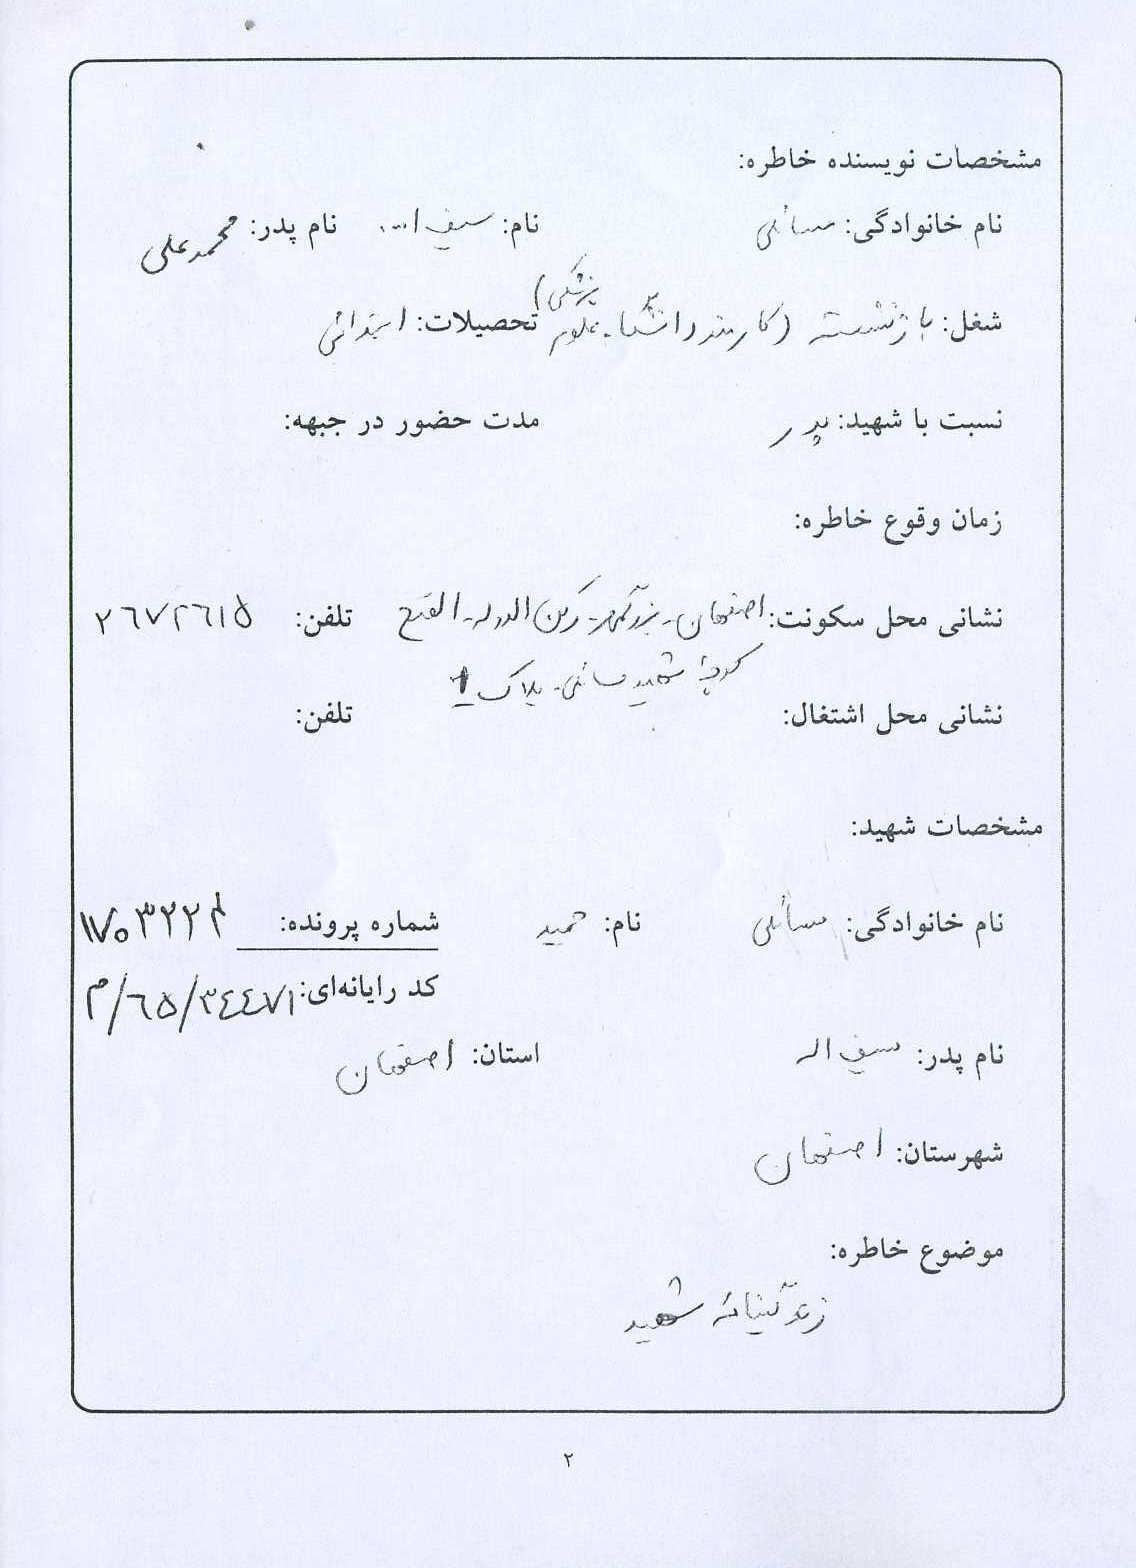 مشخصات نویسنده خاطره:
نام خانوادگی: مسائلی نام: سیف ا... نام پدر: محمدعلی
شغل: بازنشسته (کارمند دانشگاه علوم پزشکی) تحصیلات: ابتدائی
نسبت با شهید: پدر مدت حضور در جبهه:
زمان وقوع خاطره:
نشانی محل سکونت: اصفهان - بزرگمهر - رکن الدوله - الفتح تلفن: ۲۶۷۲۶۱۵
کوچه شهید مسائلی - پلاک ۱
نشانی محل اشتغال: تلفن:
مشخصات شهید:
نام خانوادگی: مسائلی نام: حمید شماره پرونده: ۱۷۰۳۲۲۴
کد رایانه‌ای: م/۶۵/۳۴۴۷۱
نام پدر: سیف اله استان: اصفهان
شهرستان: اصفهان
موضوع خاطره:
زندگینامه شهید
۲